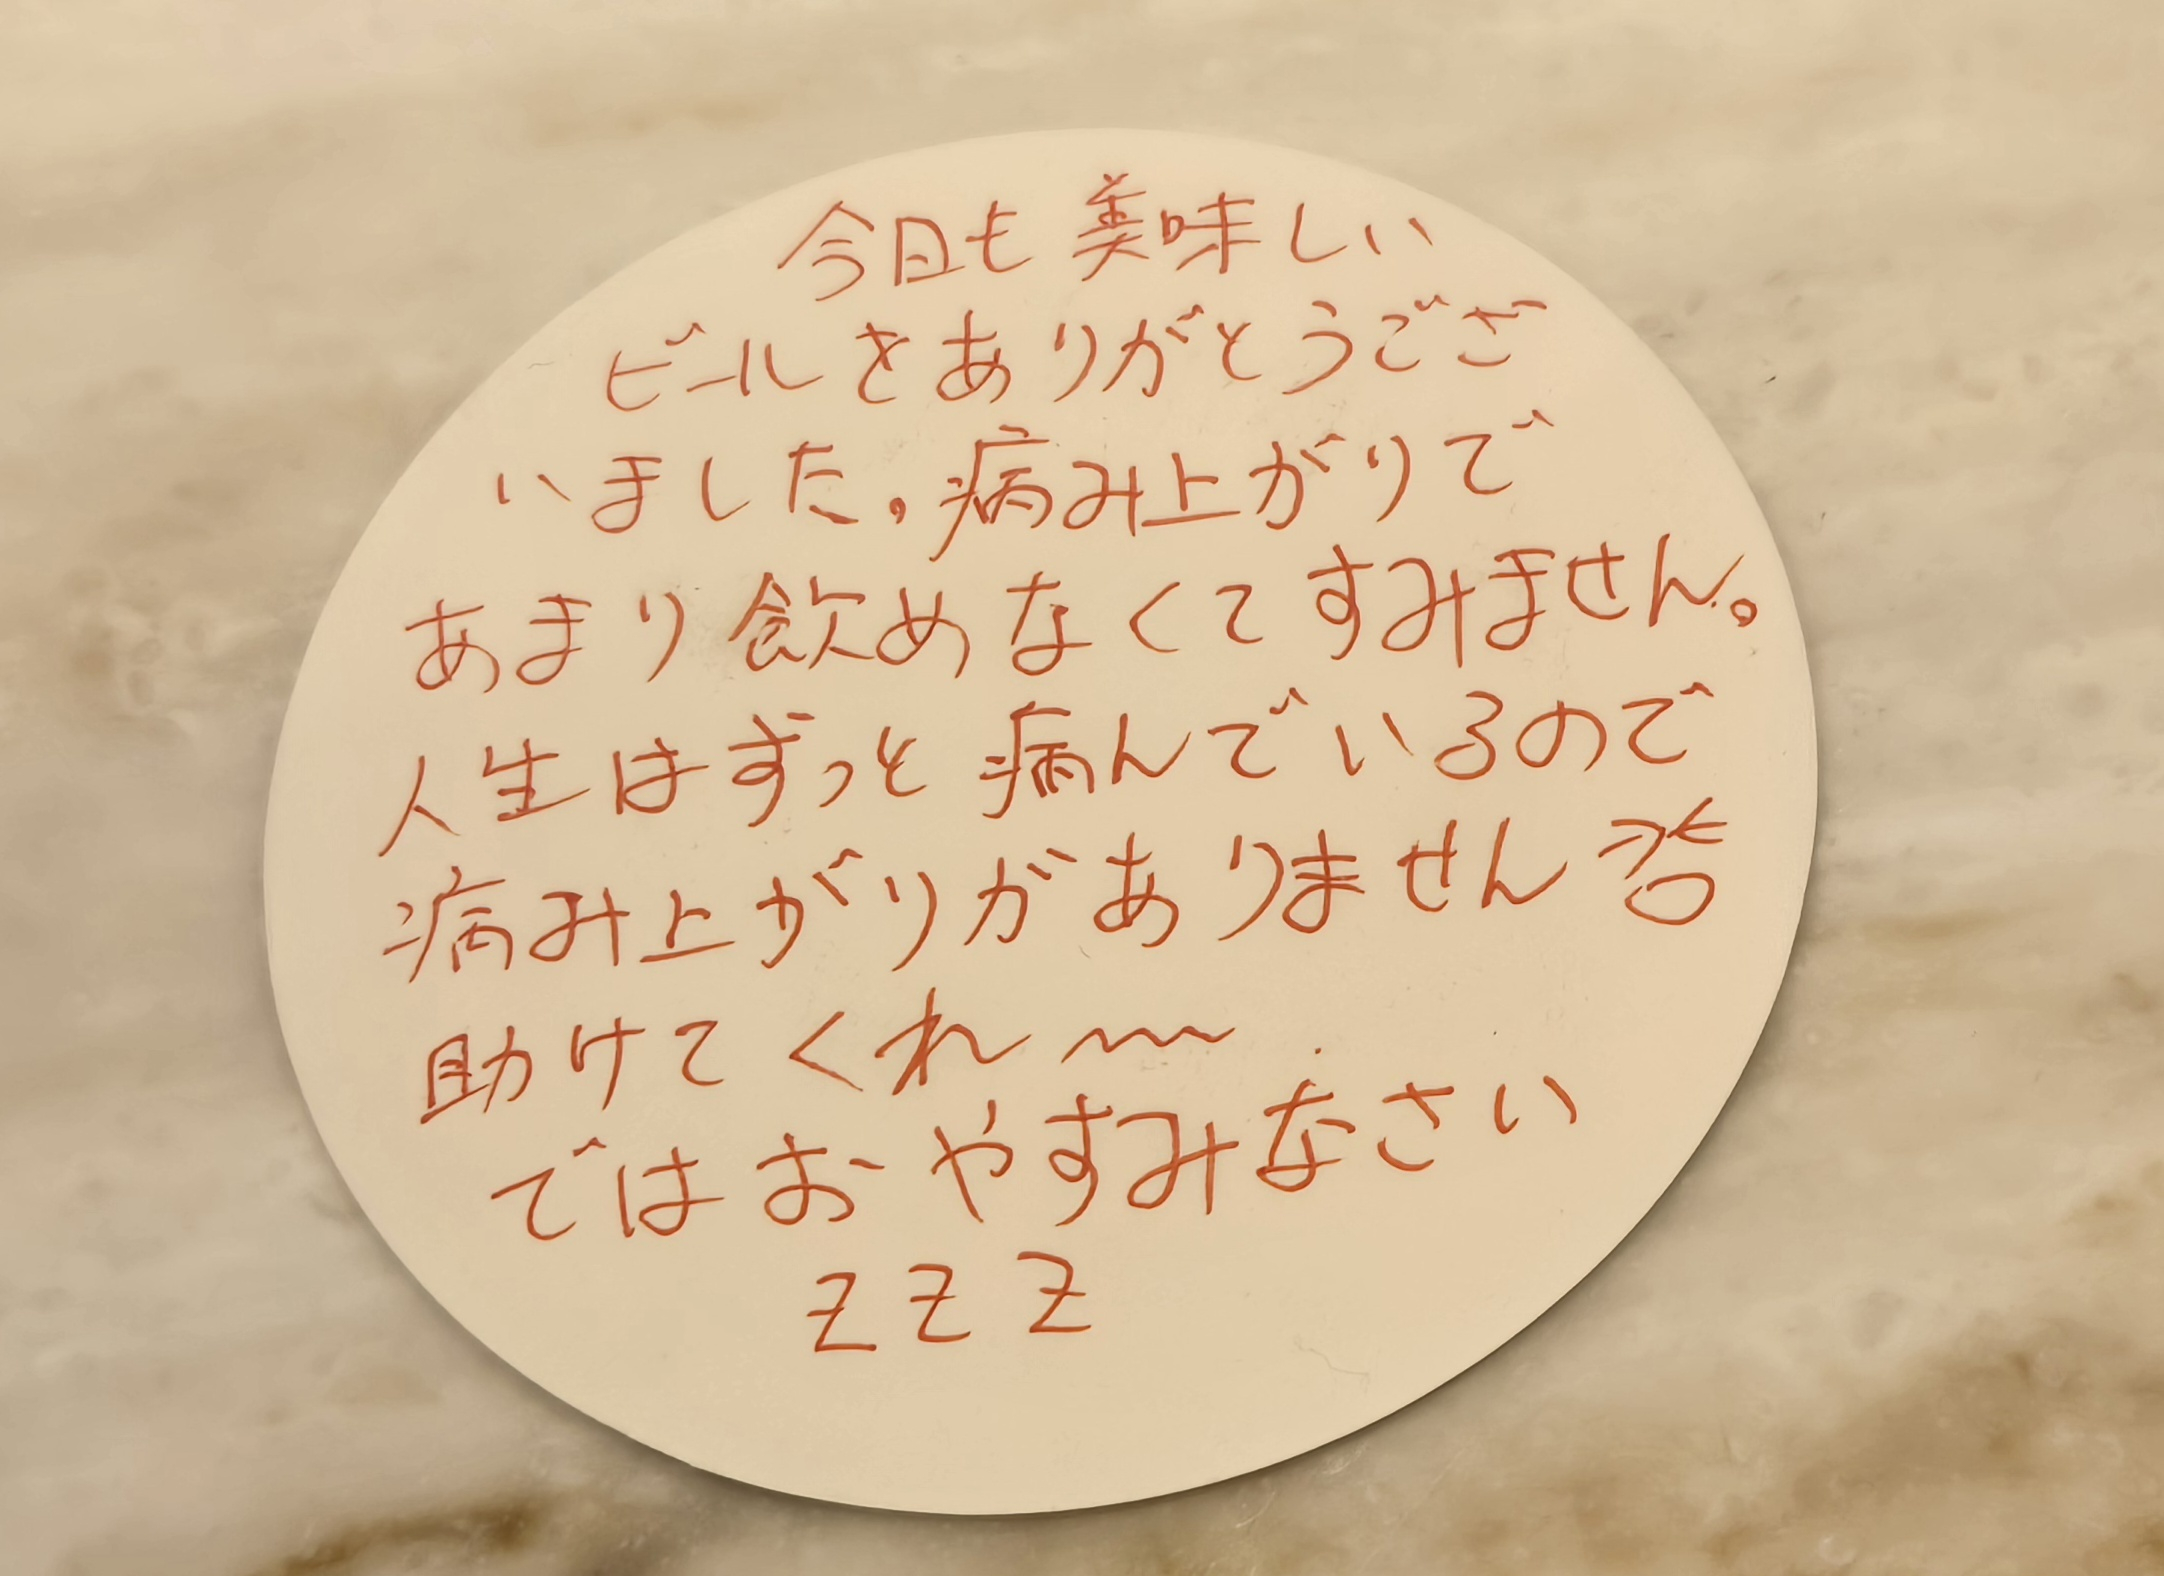 今日も美味しい
ビールをありがとうござ
いました。病み上がりで
あまり飲めなくてすみません。
人生はずっと病んでいるので
病み上がりがありません
助けてくれ〜〜
ではおやすみなさい
zzz